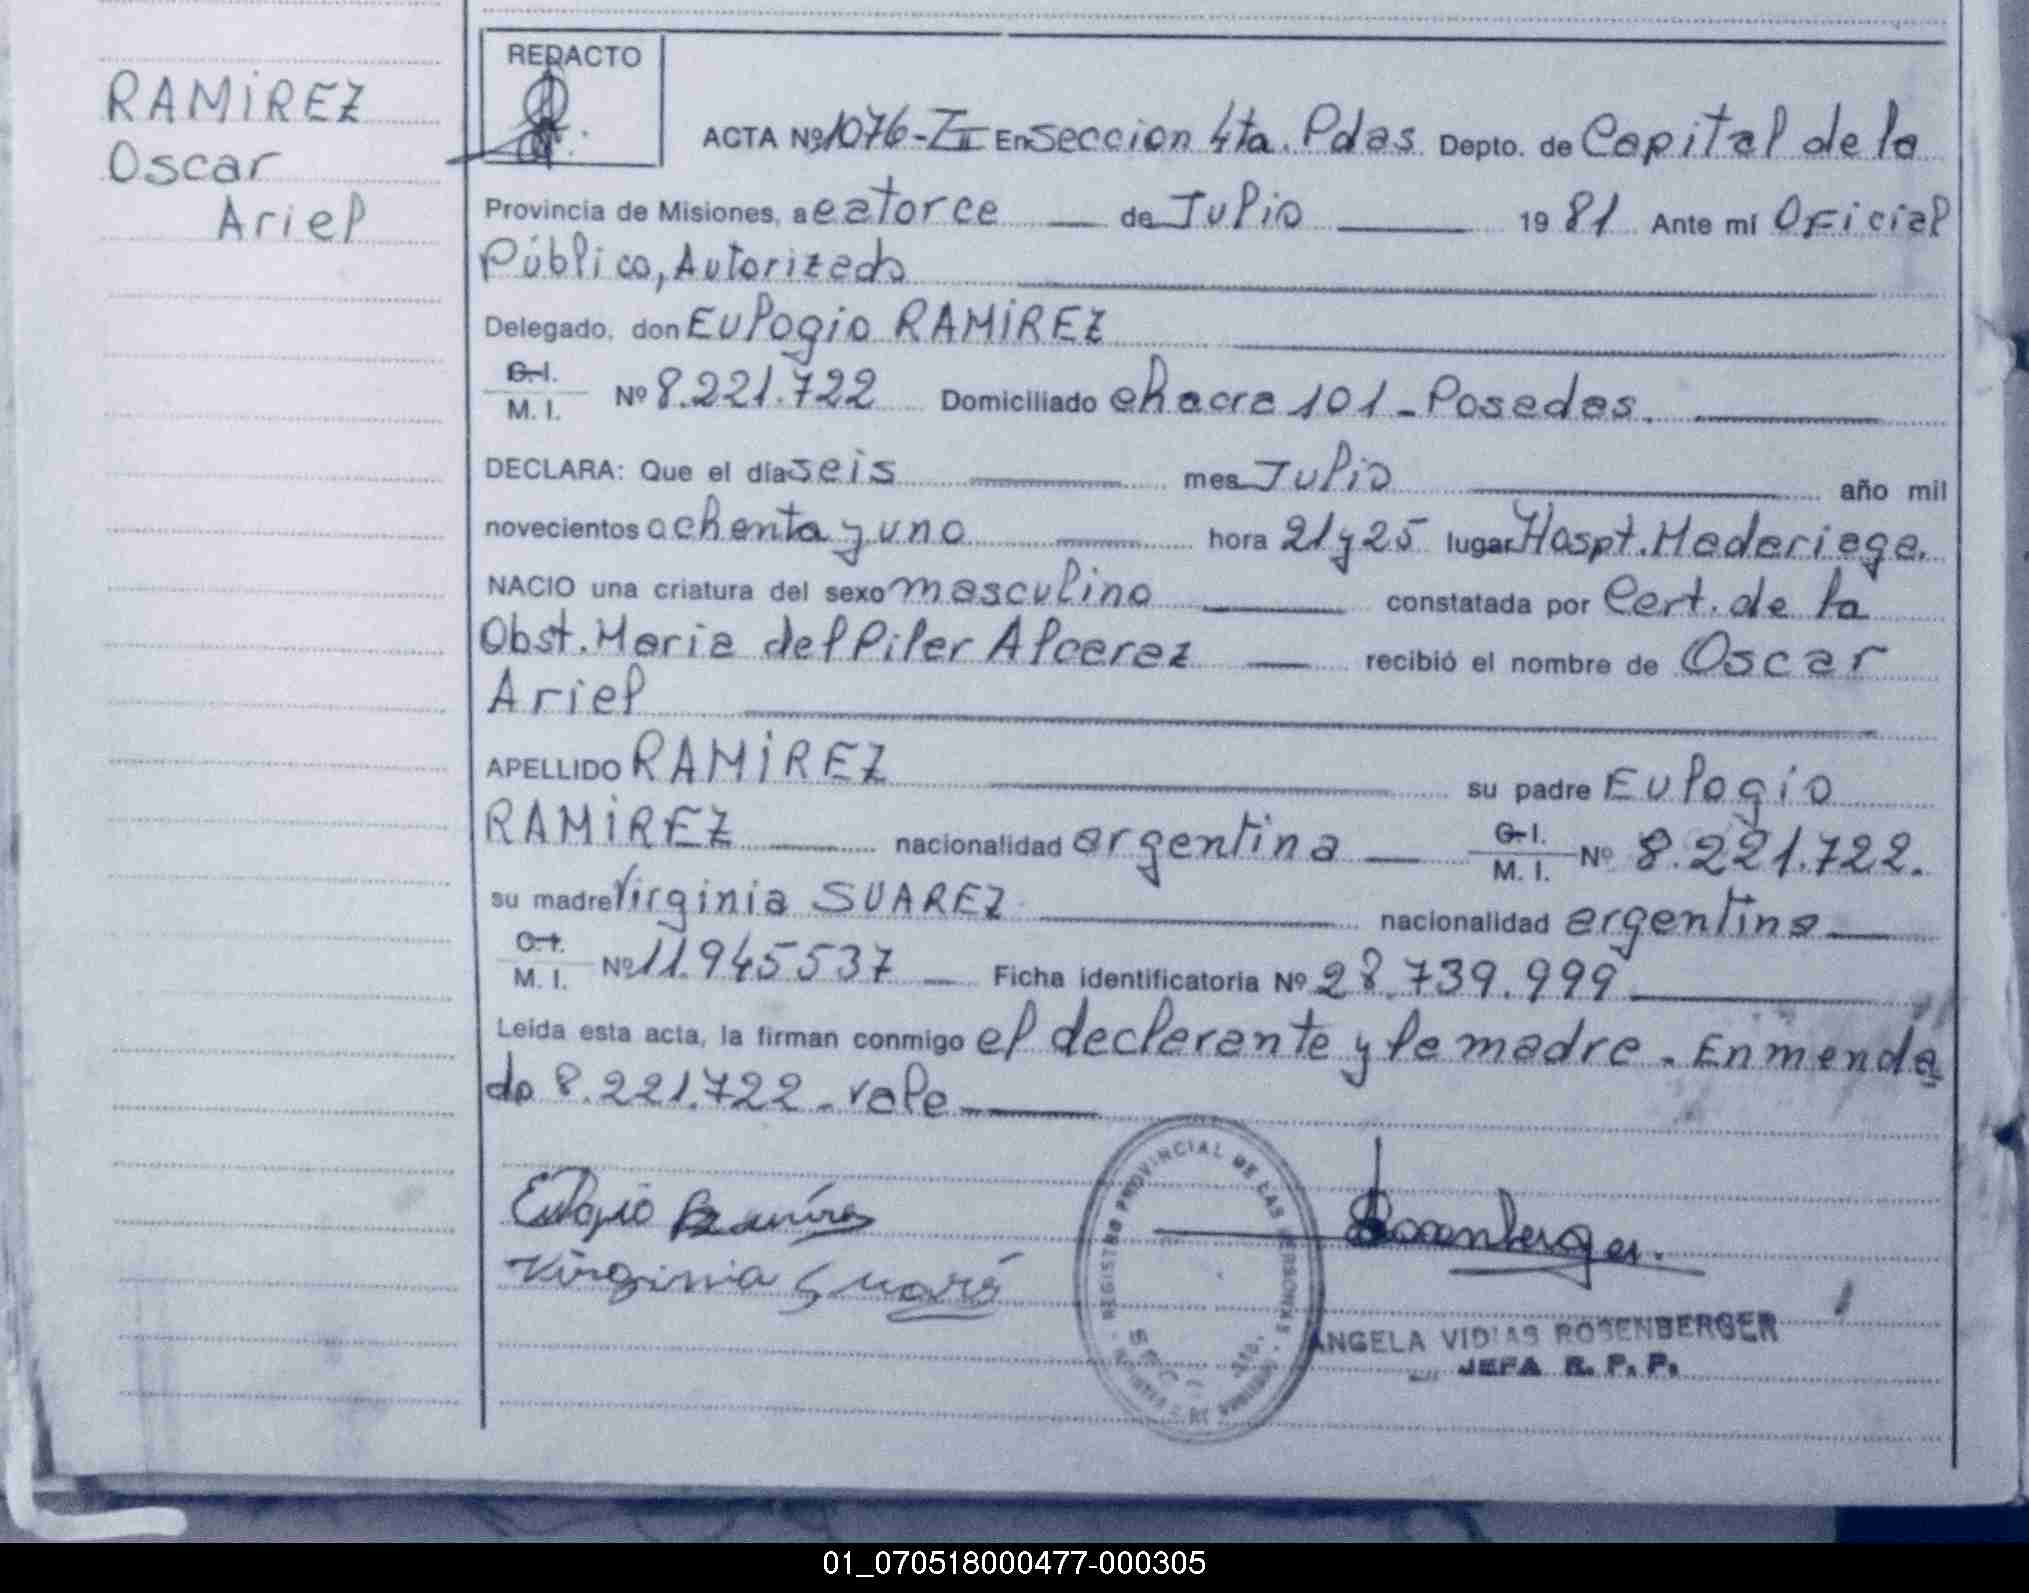 RAMIREZ
Oscar
Ariel
REDACTO
ACTA Nº 1076-TII En Seccion 4ta. Pdas. Depto. de Capital de la
Provincia de Misiones, a catorce de Julio 1981 Ante mí Oficial
Público, Autorizado
Delegado, don Eulogio RAMIREZ
C. I.
M. I. Nº 8.221.722 Domiciliado chacra 101 - Posadas.
DECLARA: Que el día seis mes Julio año mil
novecientos ochenta y uno hora 21 y 25 lugar Hospt. Madariaga.
NACIO una criatura del sexo masculino constatada por Cert. de la
Obst. Maria del Pilar Alcaraz recibió el nombre de Oscar
Ariel
APELLIDO RAMIREZ su padre Eulogio
RAMIREZ nacionalidad argentina C. I. M. I. Nº 8.221.722.
su madre Virginia SUAREZ nacionalidad argentina
C. I.
M. I. Nº 11.945537 Ficha identificatoria Nº 28.739.999
Leída esta acta, la firman conmigo el declarante y la madre. Enmenda
do 8.221.722 - vale
Eulogio Ramírez
Virginia Suaré
REGISTRO PROVINCIAL DE LAS PERSONAS
SECC. 4ta.
Rosenberger.
ANGELA VIDIAS ROSENBERGER
JEFA R. P. P.
01_070518000477-000305